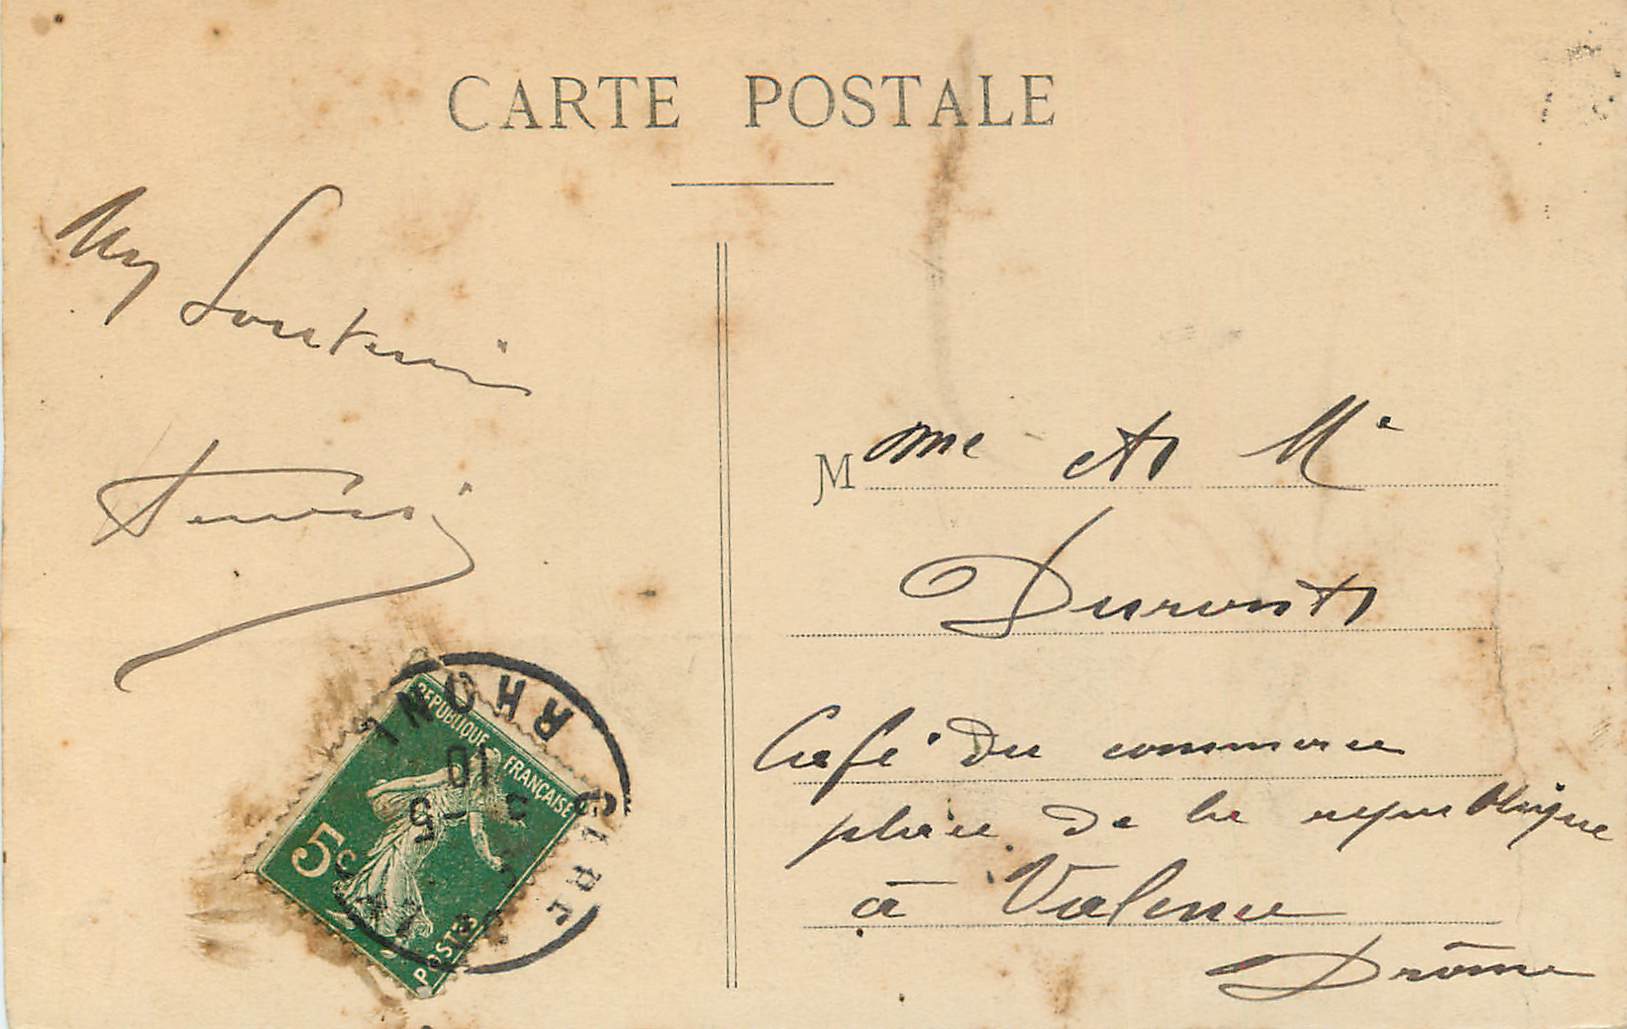 CARTE POSTALE
My Soutenir
Mme et Mr
Duront
Café du commerce
place de la republique
à Valence
Drôme
REPUBLIQUE FRANÇAISE
5c
POSTES
RHONE
10
3 -5